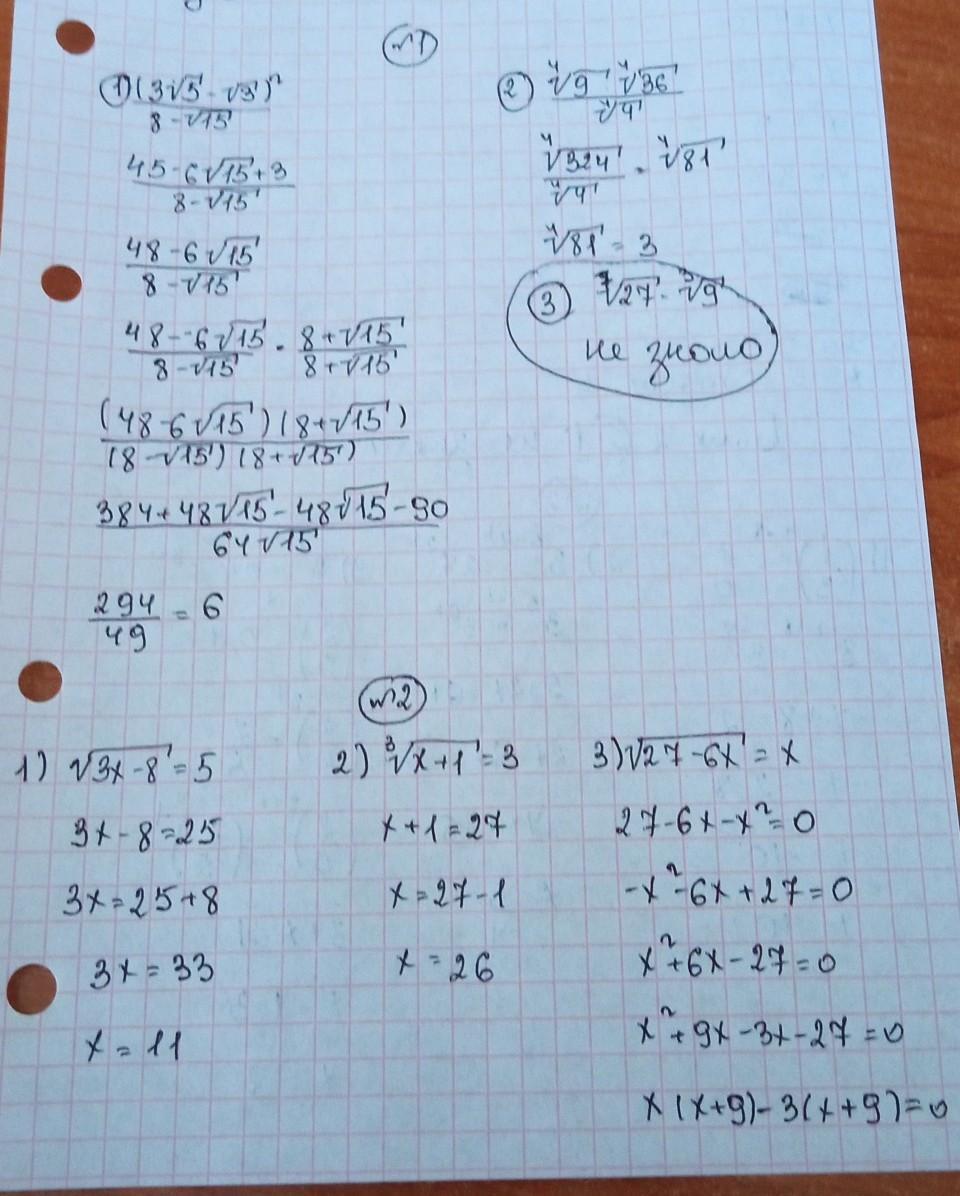 №1
1) (3√5 - √3)²
8-√15
45-6√15+3
8-√15
48-6√15
8-√15
48-6√15 · 8+√15
8-√15 8+√15
(48-6√15)(8+√15)
(8-√15)(8+√15)
384+48√15-48√15-90
64√15
294 = 6
49
2) ∜9 ∜36
∜4
∜324 · ∜81
∜4
∜81 = 3
3) ∛27 · ∛9
не знаю
№2
1) √3x-8 = 5
3x-8=25
3x=25+8
3x=33
x=11
2) ∛x+1 = 3
x+1=27
x=27-1
x=26
3) √27-6x = x
27-6x-x²=0
-x²-6x+27=0
x²+6x-27=0
x²+9x-3x-27=0
x(x+9)-3(x+9)=0